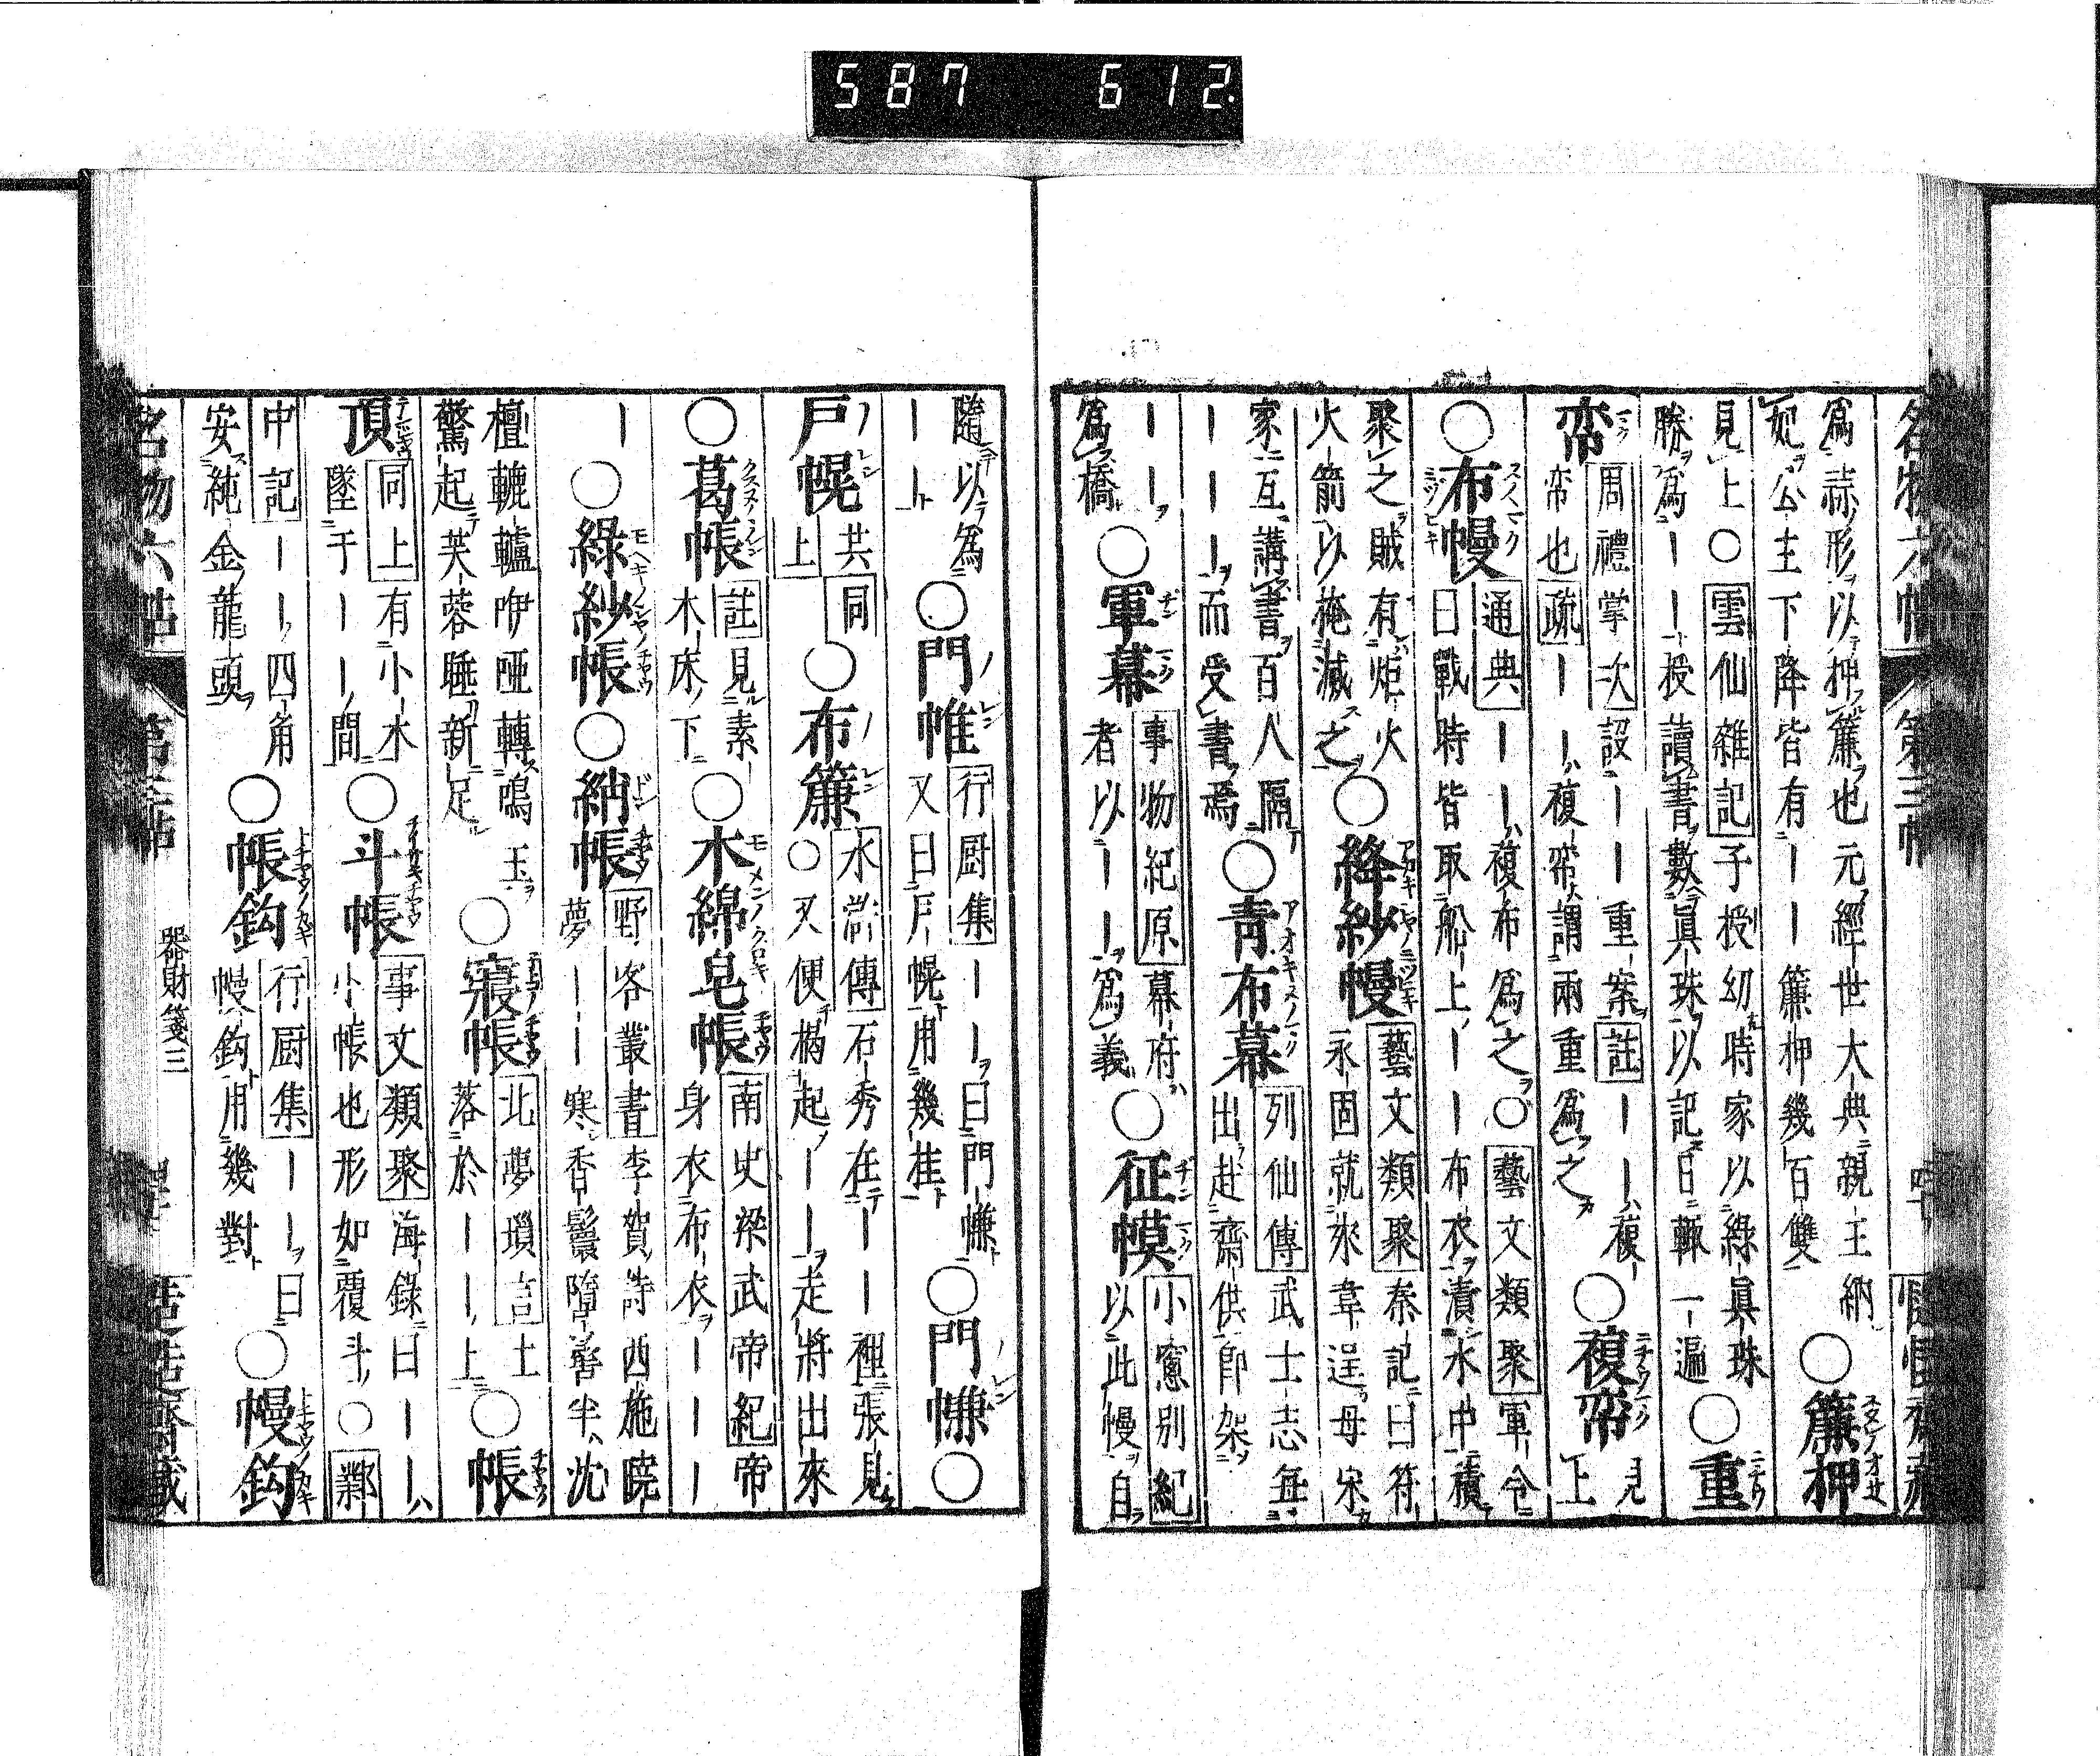 587 612
名物六帖 第三帖
爲蒜形以押簾也元經世大典親王納
妃公主下降皆有｜｜簾押幾百雙
○簾押
見上○雲仙雜記子授幼時家以綠眞珠
勝爲｜｜授讀書數眞珠以記日輙一遍
○重
帟
周禮掌次設｜｜重案註｜｜複
帟也疏｜｜複帟謂兩重爲之
○複帟
見上
○布幔
通典｜｜複布爲之○藝文類聚軍令
曰戰時皆取船上｜｜布衣漬水中積
聚之賊有炬火
火箭以掩滅之
○絳紗幔
藝文類聚秦記曰符
永固就來韋逞母宋
家互講書百人隔
｜｜｜而受書焉
○青布幕
列仙傳武士志毎
出赴齋供即架
｜｜
爲橋
○軍幕
事物紀原幕府
者以｜｜爲義
○征幙
小窻別紀
以此幔自
隨以爲
｜｜
○門帷
行厨集｜｜曰門㡘
又曰戸幌用幾桂
○門㡘○
戸幌
共同上
○布簾
水滸傳石秀在｜｜裡張見
○又便揭起｜｜走將出來
○葛帳
註見素
木床下
○木綿皂帳
南史梁武帝紀帝
身衣布衣｜｜
｜○綠紗帳○綃帳
野客叢書李賀詩西施曉
夢｜｜寒香鬟墮髻半沈
檀轆轤咿啞轉鳴玉
驚起芙蓉睡新足
○寢帳
北夢瑣言土
落於｜｜上
○帳
頂
同上有小木
墜于｜｜間
○斗帳
事文類聚海錄曰｜｜
小帳也形如覆斗○鄴
中記｜｜四角
安純金龍頭
○帳鈎
行厨集｜｜曰
幔鈎用幾對
○幔鈎
名物六帖 第三帖 器財箋三